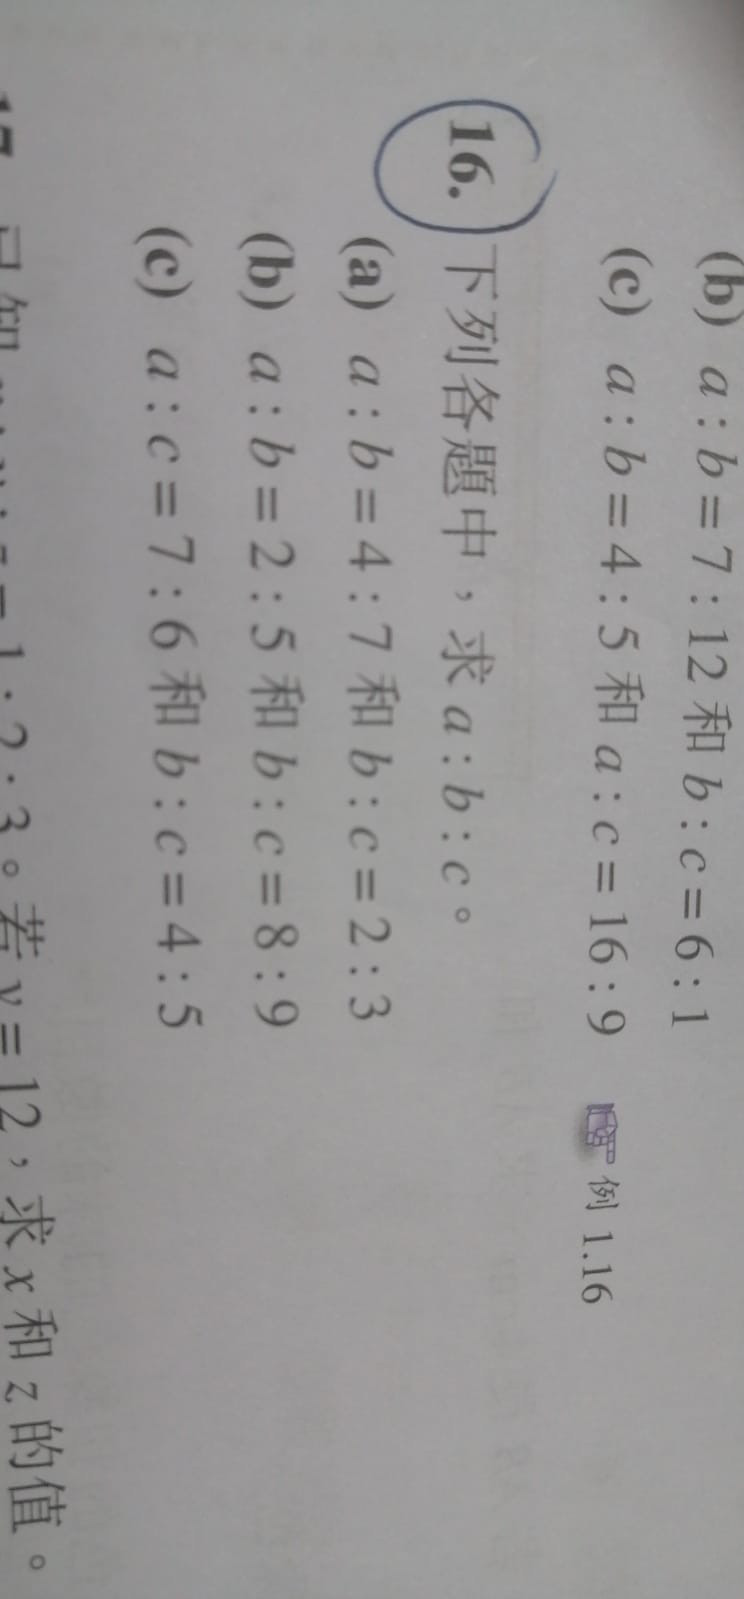 (b) a : b = 7 : 12 和 b : c = 6 : 1
(c) a : b = 4 : 5 和 a : c = 16 : 9 例 1.16
16. 下列各題中，求 a : b : c。
(a) a : b = 4 : 7 和 b : c = 2 : 3
(b) a : b = 2 : 5 和 b : c = 8 : 9
(c) a : c = 7 : 6 和 b : c = 4 : 5
17. 已知 = 1 : 2 : 3。若 y = 12，求 x 和 z 的值。